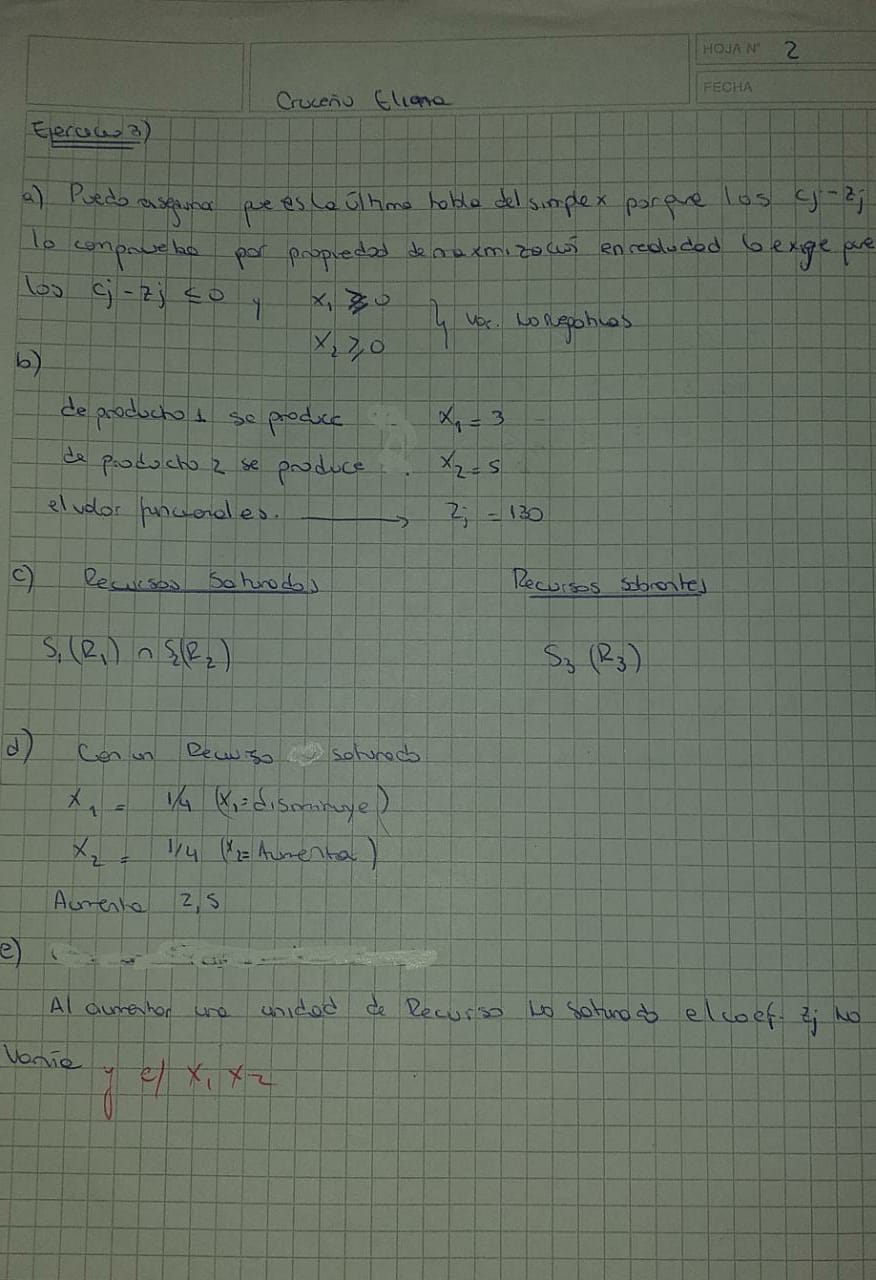 HOJA N° 2
FECHA
Cruceño Eliana
Ejercicio 3)
a) Puedo asegurar que es la última tabla del simplex porque los cj-zj
lo comprueba por propiedad de maximización en realidad lo exige que
los cj - zj ≤ 0 y x₁ ≥ 0 } var. no negativas
x₂ ≥ 0
b)
de producto 1 se produce x₁ = 3
de producto 2 se produce . x₂ = 5
el valor funcional es. → Zj = 130
c) Recursos Saturados Recursos Sobrantes
S₁(R₁) ∩ S₂(R₂) S₃ (R₃)
d) Con un Recurso saturado
x₁ = 1/4 (x₁ = disminuye)
x₂ = 1/4 (x₂ = Aumenta)
Aumenta 2,5
e)
Al aumentar una unidad de Recurso no saturado el coef. zj no
varía y el x₁ x₂